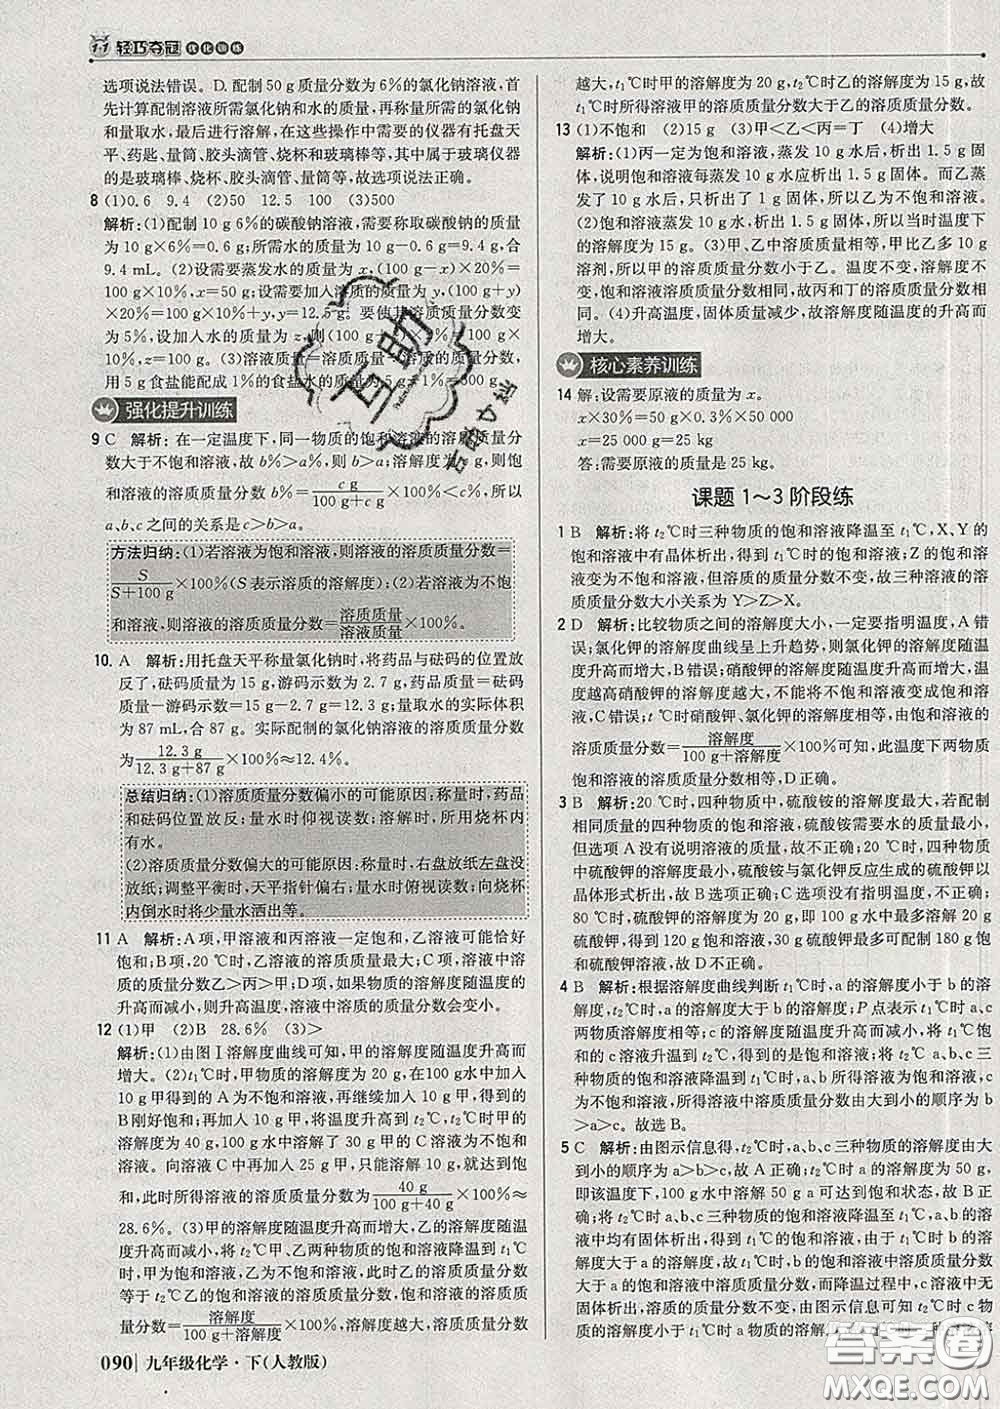 1+1 轻巧夺冠 优化训练
选项说法错误。D. 配制 50 g 质量分数为 6%的氯化钠溶液,首
先计算配制溶液所需氯化钠和水的质量,再称量所需的氯化钠
和量取水,最后进行溶解,在这些操作中需要的仪器有托盘天
平、药匙、量筒、胶头滴管、烧杯和玻璃棒,其中属于玻璃仪器
的是玻璃棒、烧杯、胶头滴管、量筒等,故选项说法正确。
8 (1)0.6 9.4 (2)50 12.5 100 (3)500
解析:(1)配制 10 g 6%的碳酸钠溶液,需要称取碳酸钠的质量
为 10 g×6%=0.6 g;所需水的质量为 10 g-0.6 g=9.4 g,合
9.4 mL。(2)设需要蒸发水的质量为 x,(100 g-x)×20%=
100 g×10%,x=50 g;设需要加入溶质的质量为 y,(100 g+y)
×20%=100 g×10%+y,y=12.5 g。要使其溶质质量分数变
为 5%,设加入水的质量为 z,则(100 g+z)×5%=100 g×
10%,z=100 g。(3)溶液质量×溶质质量分数=溶质质量,
用 5 g 食盐能配成 1%的食盐水的质量为
强化提升训练
9 C 解析:在一定温度下,同一物质的饱和溶液的溶质质量分
数大于不饱和溶液,故 b%>a%,则 b>a;溶解度为 c g,则饱
和溶液的溶质质量分数 b%=c g/(100 g+c g)×100%<c%,所以
a、b、c 之间的关系是 c>b>a。
方法归纳:(1)若溶液为饱和溶液,则溶液的溶质质量分数=
S/(S+100 g)×100%(S 表示溶质的溶解度);(2)若溶液为不饱
和溶液,则溶液的溶质质量分数=溶质质量/溶液质量×100%。
10. A 解析:用托盘天平称量氯化钠时,将药品与砝码的位置放
反了,砝码质量为 15 g,游码示数为 2.7 g,药品质量=砝码
质量-游码示数=15 g-2.7 g=12.3 g;量取水的实际体积
为 87 mL,合 87 g。实际配制的氯化钠溶液的溶质质量分数
为12.3 g/(12.3 g+87 g)×100%≈12.4%。
总结归纳:(1)溶质质量分数偏小的可能原因:称量时,药品
和砝码位置放反;量水时仰视读数;溶解时,所用烧杯内
有水。
(2)溶质质量分数偏大的可能原因:称量时,右盘放纸左盘没
放纸;调整平衡时,天平指针偏右;量水时俯视读数;向烧杯
内倒水时将少量水洒出等。
11 A 解析:A 项,甲溶液和丙溶液一定饱和,乙溶液可能恰好
饱和;B 项,20 ℃时,乙溶液的溶质质量最大;C 项,溶液中溶
质的质量分数乙>丙>甲;D 项,如果物质的溶解度随温度的
升高而减小,则升高温度,溶液的溶质质量分数会变小。
12 (1)甲 (2)B 28.6% (3)>
解析:(1)由图Ⅰ溶解度曲线可知,甲的溶解度随温度升高而
增大。(2)t₁℃时,甲物质的溶解度为 20 g,100 g 水中加入
10 g 甲得到的 A 不饱和溶液,再继续加入 10 g 甲,得到的
B 刚好饱和;再加入 10 g 甲,将温度升高到 t₂℃,t₂℃时甲的
溶解度为 40 g,100 g 水中溶解了 30 g 甲的 C 溶液为不饱和
溶液。向溶液 C 中加入 25 g 甲,只能溶解 10 g,就达到饱
和。此时所得溶液的溶质质量分数为40 g/(100 g+40 g)×100%≈
28.6%。(3)甲的溶解度随温度升高而增大,乙的溶解度随温
度升高而减小,将甲、乙两种物质的饱和溶液降温到 t₁℃
时,甲为饱和溶液,乙为不饱和溶液,此时乙的溶质质量分数
等于 t₂℃乙的饱和溶液的溶质质量分数,饱和溶液溶质质
量分数=溶解度/(100 g+溶解度)×100%,溶解度越大,溶质质量分数
越大,t₁℃时甲的溶解度为 20 g,t₂℃时乙的溶解度为 15 g,故
t₁℃时所得溶液甲的溶质质量分数大于乙的质量分数。
13 (1)不饱和 (2)15 g (3)甲<乙<丙=丁 (4)增大
解析:(1)丙一定为饱和溶液,蒸发 10 g 水,析出 1.5 g 固
体,说明饱和溶液每蒸发 10 g 水应析出 1.5 g 固体。而乙蒸
发了 10 g 水后,只析出了 1 g 固体,所以乙为不饱和溶液。
(2)饱和溶液蒸发 10 g 水,析出 1.5 g 固体,所以当时温度下
的溶解度为 15 g。(3)甲、乙中溶质质量相等,甲比乙多 10 g
溶剂,所以甲的溶质质量分数小于乙。温度不变,溶解度不
变,饱和溶液溶质质量分数相同,故丙和丁的溶质质量分数
相同。(4)升高温度,固体质量减少,故溶解度随温度的升高而
增大。
核心素养训练
14 解:设需要原液的质量为 x。
x×30%=50 g×0.3%×50 000
x=25 000 g=25 kg
答:需要原液的质量是 25 kg。
课题 1~3 阶段练
1 B 解析:将 t₂℃时三种物质的饱和溶液降温至 t₁℃,X、Y 的
饱和溶液中有晶体析出,得到 t₁℃时的饱和溶液;Z 的饱和溶
液变为不饱和溶液,但溶质的质量不变,故三种溶液的溶
质质量分数大小关系为 Y>Z>X。
2 D 解析:比较物质之间的溶解度大小,一定要指明温度,A 错
误;氯化钾的溶解度曲线呈上升趋势,则氯化钾的溶解度随温
度升高而增大,B 错误;硝酸钾的溶解度随温度升高而增大,温
度越高硝酸钾的溶解度越大,不能将不饱和溶液变成饱和溶
液,C 错误;t ℃时硝酸钾、氯化钾的溶解度相等,由饱和溶液的
溶质质量分数=溶解度/(100 g+溶解度)×100%可知,此温度下两物质
饱和溶液的溶质质量分数相等,D 正确。
3 B 解析:20 ℃时,四种物质中,硫酸铵的溶解度最大,若配制
相同质量的四种物质的饱和溶液,硫酸铵需要水的质量最小,
但选项 A 没有说明溶液的质量,故 A 不正确;20 ℃时,四种物
质中硫酸钾的溶解度最小,硫酸铵与氯化钾反应生成的硫酸钾以
晶体形式析出,故 B 选项正确;C 选项没有指明温度,不正确;
80 ℃时,硫酸钾的溶解度为 20 g,即 100 g 水中最多溶解 20 g
硫酸钾,得到 120 g 饱和溶液,90 g 水最多可配制 180 g 饱
和硫酸钾溶液,故 D 不正确。
4 B 解析:根据溶解度曲线判断 t₁℃时,a 的溶解度小于 b 的溶
解度,t₂℃时,a 的溶解度大于 b 的溶解度;P 点表示 t₁℃时 a、c
两物质溶解度相等;c 的溶解度随温度升高而减小,将 t₁℃饱
和的 c 溶液升温到 t₂℃,得到 c 的饱和溶液;将 t₂℃ a、b、c 的
饱和溶液降温到 t₁℃,a、b 所得溶液为饱和溶液,c 所得溶液
为不饱和溶液,所得溶液中溶质质量分数由大到小的顺序是
b>a>c。故选 B。
5 C 解析:由图示信息得,t₂℃时,a、b、c 三种物质的溶解度由大
到小的顺序为 a>b>c,故 A 正确;t₂℃时 a 的溶解度为 50 g,
即该温度下,100 g 水中溶解 50 g a 可达到饱和状态,故 B 正
确;将 t₂℃时 a、b、c 三种物质的饱和溶液降温至 t₁℃,a、b 溶
液中均有固体析出,得到 t₁℃的饱和溶液,由于 t₁℃时 b
的溶解度大于 a 的溶解度,故 t₁℃时 b 的饱和溶液中溶质质量分数
大于 a 的饱和溶液中溶质质量分数,而降温过程中,c 溶液中无
固体析出,溶质的质量分数不变,由图示信息可知 t₂℃时 c 物质
090 九年级化学·下(人教版)
互助
答案圈
MXQE.COM